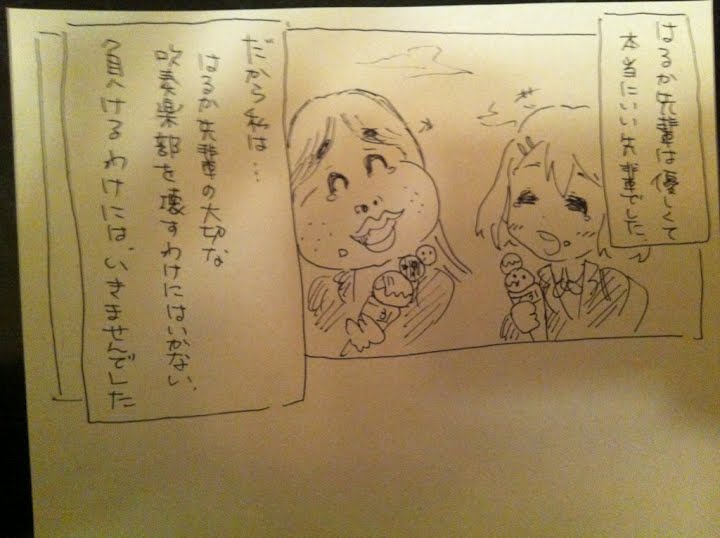 はるか先輩は優しくて
本当にいい先輩でした
だから私は…
はるか先輩の大切な
吹奏楽部を壊すわけにはいかない、
負けるわけには、いきませんでした